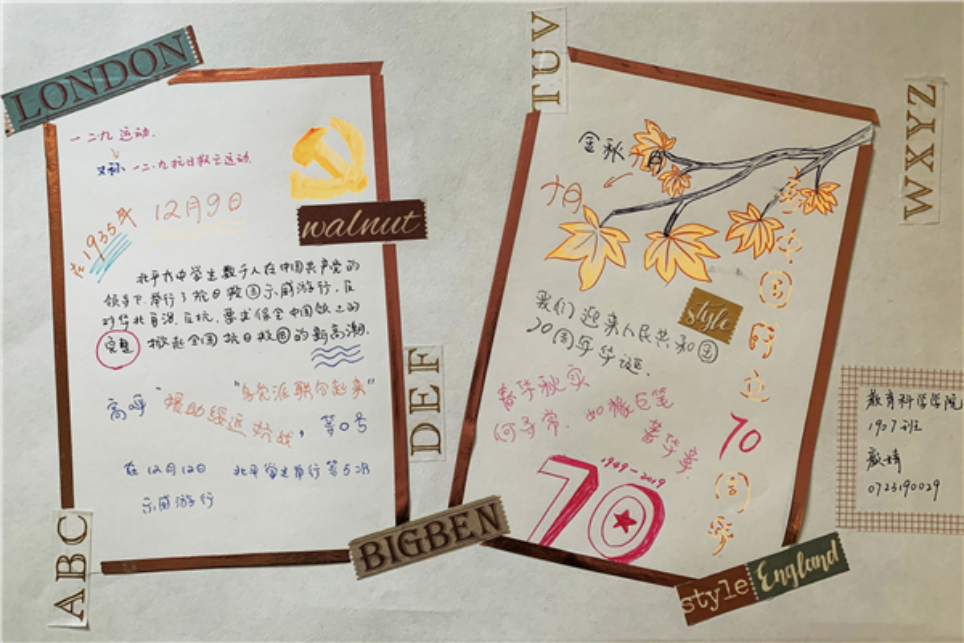 LONDON
一二九运动.
又称 一二·九抗日救亡运动.
在1935年 12月9日
walnut
北平大中学生数千人在中国共产党的
领导下.举行了抗日救国示威游行.反
对华北自治.反抗,要求保全中国领土的
完整 掀起全国抗日救国的新高潮.
高呼 "援助绥远抗战, "各党派联合起来" 等口号
在12月12日 北平学生举行第5次
示威游行
ABC
DEF
BIGBEN
TUV
金秋
十月
style
我们迎来人民共和国
70周年华诞.
春华秋实
何寻常. 如椽巨笔
著华章.
70
1949-2019
中国
成立
70
周年
style England
WXYZ
教育科学学院
1907班
0723190029